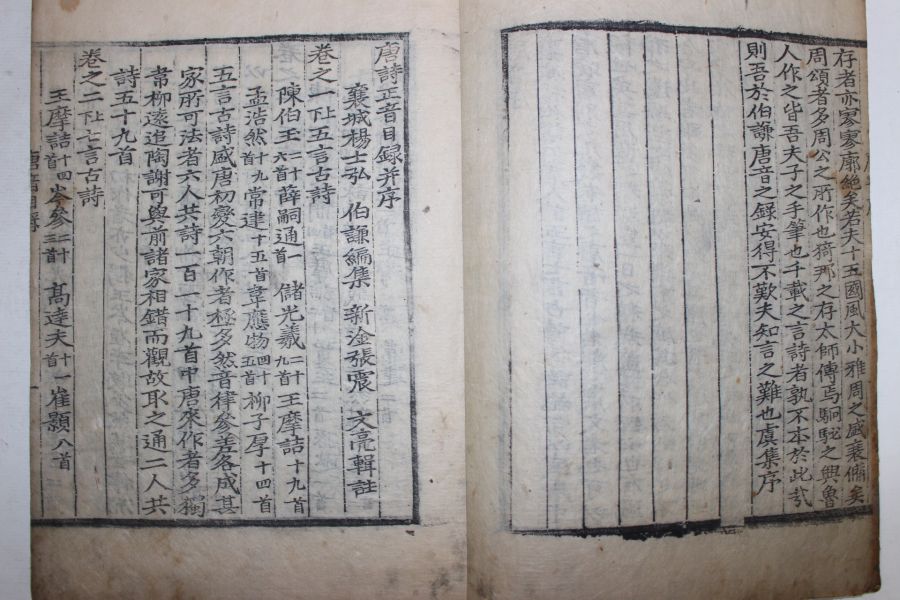 存者亦寥寥廓絶矣若夫十五國風大小雅周之盛衰備矣
周頌者多周公之所作也猗那之存太師傳焉駉駜之興魯
人作之皆吾夫子之手筆也千載之言詩者孰不本於此㢤
則吾於伯謙唐音之録安得不歎夫知言之難也虞集序
唐詩正音目録并序
襄城楊士弘 伯謙編集 新淦張震 文亮輯註
卷之一上下五言古詩
陳伯玉二十六首薛嗣通一首 儲光羲二十九首王摩詰十九首
孟浩然十九首常建十五首韋應物四十五首柳子厚十四首
五言古詩盛唐初變六朝作者極多然音律參差各成其
家所可法者六人共詩一百一十九首中唐來作者多獨
韋柳逺追陶謝可與前諸家相錯而觀故取之通二人共
詩五十九首
卷之二上下七言古詩
王摩詰十四首岑參二十三首 高達夫十一首崔顥八首
唐音目録 一